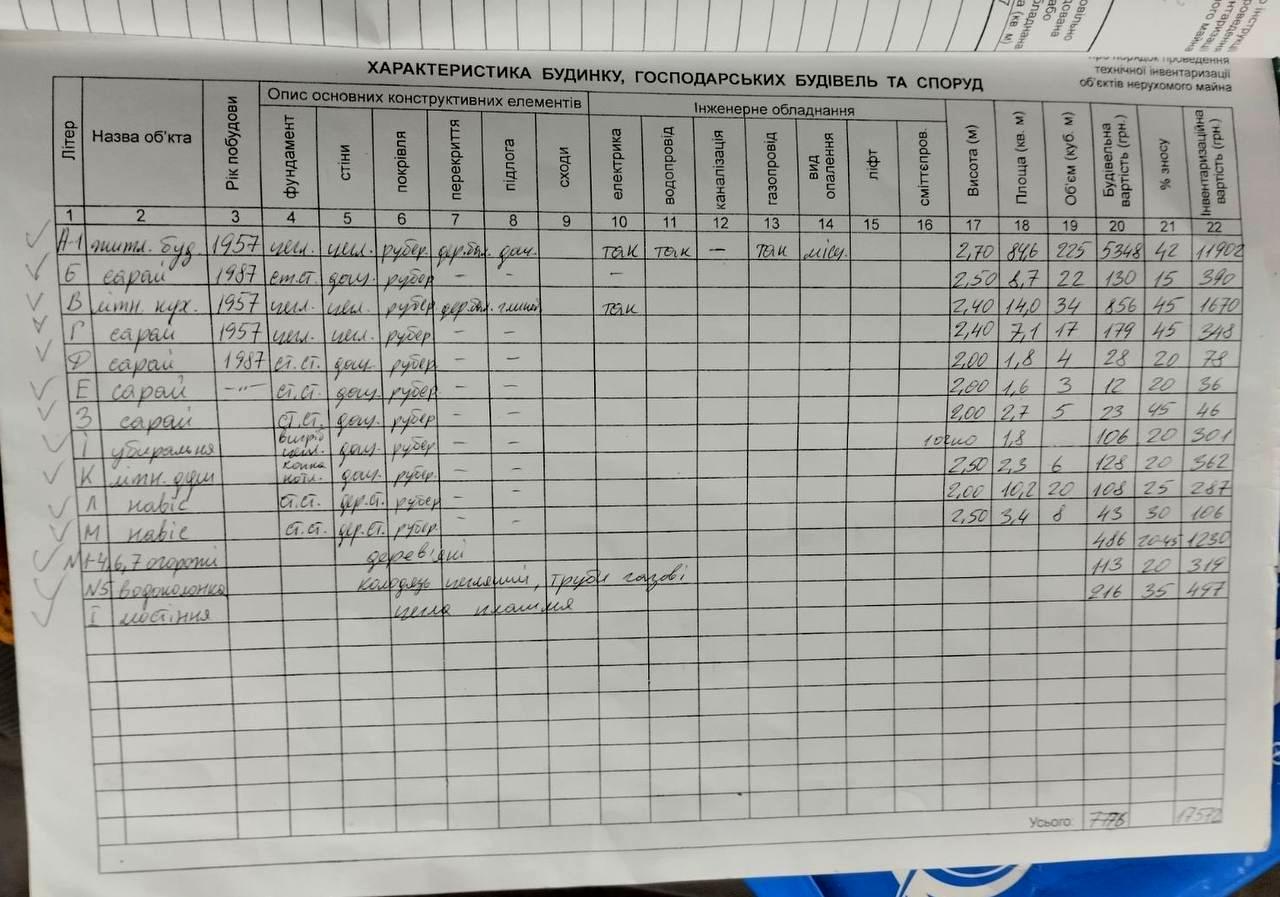 ХАРАКТЕРИСТИКА БУДИНКУ, ГОСПОДАРСЬКИХ БУДІВЕЛЬ ТА СПОРУД
про порядок проведення
технічної інвентаризації
об'єктів нерухомого майна
Опис основних конструктивних елементів Інженерне обладнання
Літер Назва об'кта Рік побудови фундамент стіни покрівля перекриття підлога сходи електрика водопровід каналізація газопровід вид опалення ліфт сміттєпров. Висота (м) Площа (кв. м) Об'єм (куб. м) Будівельна вартість (грн.) % зносу Інвентаризаційна вартість (грн.)
1 2 3 4 5 6 7 8 9 10 11 12 13 14 15 16 17 18 19 20 21 22
А-1 житл. буд. 1957 цегл. цегл. рубер. дер.бал. дощ. так так — так місц. 2,70 84,6 225 5348 42 11902
Б сарай 1987 ст.ст. дощ. рубер — — — 2,50 8,7 22 130 15 390
В літн. кух. 1957 цегл. цегл. рубер дер.бал. глин. так 2,40 14,0 34 856 45 1670
Г сарай 1957 цегл. цегл. рубер. — — 2,40 7,1 17 179 45 348
Д сарай 1987 ст.ст. дощ. рубер — — 2,00 1,8 4 28 20 78
Е сарай —"— ст.ст. дощ. рубер — — 2,00 1,6 3 12 20 36
З сарай ст.ст. дощ. рубер — — 2,00 2,7 5 23 45 46
І убиральня вигріб цегл. дощ. рубер — — 1,8 106 20 301
К літн. душ дощ. рубер. — — 2,50 2,3 6 128 20 362
Л навіс ст.ст. дер.ст. рубер — — 2,00 10,2 20 108 25 287
М навіс ст.ст. дер.ст. рубер. — — 2,50 3,4 8 43 30 106
N1-4,6,7 огорожі дерев'яні 486 20-45 1230
N5 водоколонка колодязь цегляний, труби газові 113 20 319
I мостіння цегла плашмя 216 35 497
Усього: 7776 17572